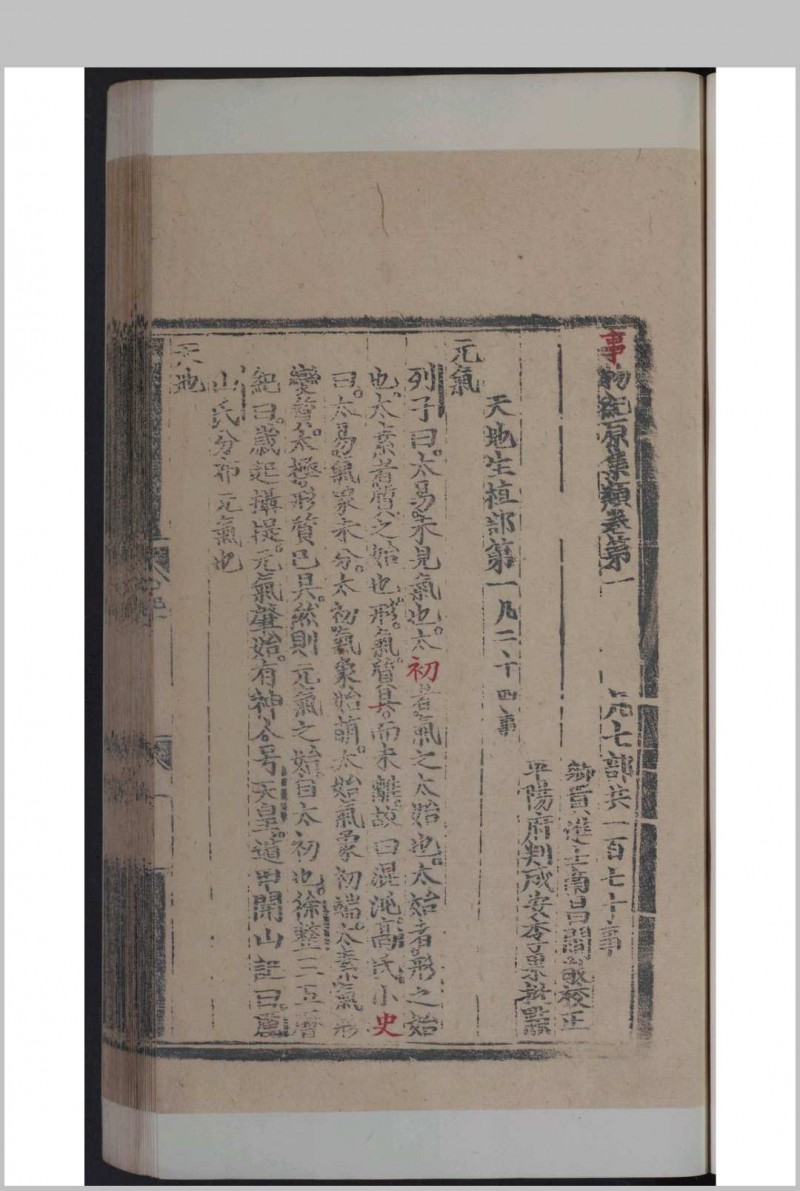 事物紀原集類卷第一 凡七部共一百七十事
敕賜進士南昌閻敬校正
平陽府判成安李果批點
天地生植部第一凡二十四事
元氣
列子曰太易未見氣也太初者氣之太始也太始者形之始
也太素者質之始也形氣質具而未離故曰混沌高氏小史
曰太易氣象未分太初氣象始萌太始氣象初端太素氣形
變質太極形質已具然則元氣之始自太初也徐整三五曆
紀曰歲起攝提元氣肇始有神人号天皇遁甲開山記曰麗
山氏分布元氣也
天地